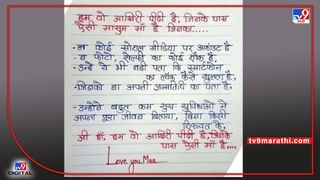 TV9
मराठी
हम वो आखिरी पीढ़ी है, जिनके पास
ऐसी मासूम माँ है जिनका.....
- न कोई सोशल मीडिया पर अकाउंट है
- न फोटो, सेल्फी का कोई शौक है
- उन्हें ये भी नहीं पता कि स्मार्टफोन
का लॉक कैसे खुलता है
- जिनको न अपनी जन्मतिथि का पता है
- उन्होंने बहुत कम सुख सुविधाओं में
अपना पूरा जीवन बिताया, बिना किसी
शिकायत के
जी हाँ, हम वो आखिरी पीढ़ी है, जिनके
पास ऐसी माँ है....
Love you Maa....
DIGITAL
tv9marathi.com